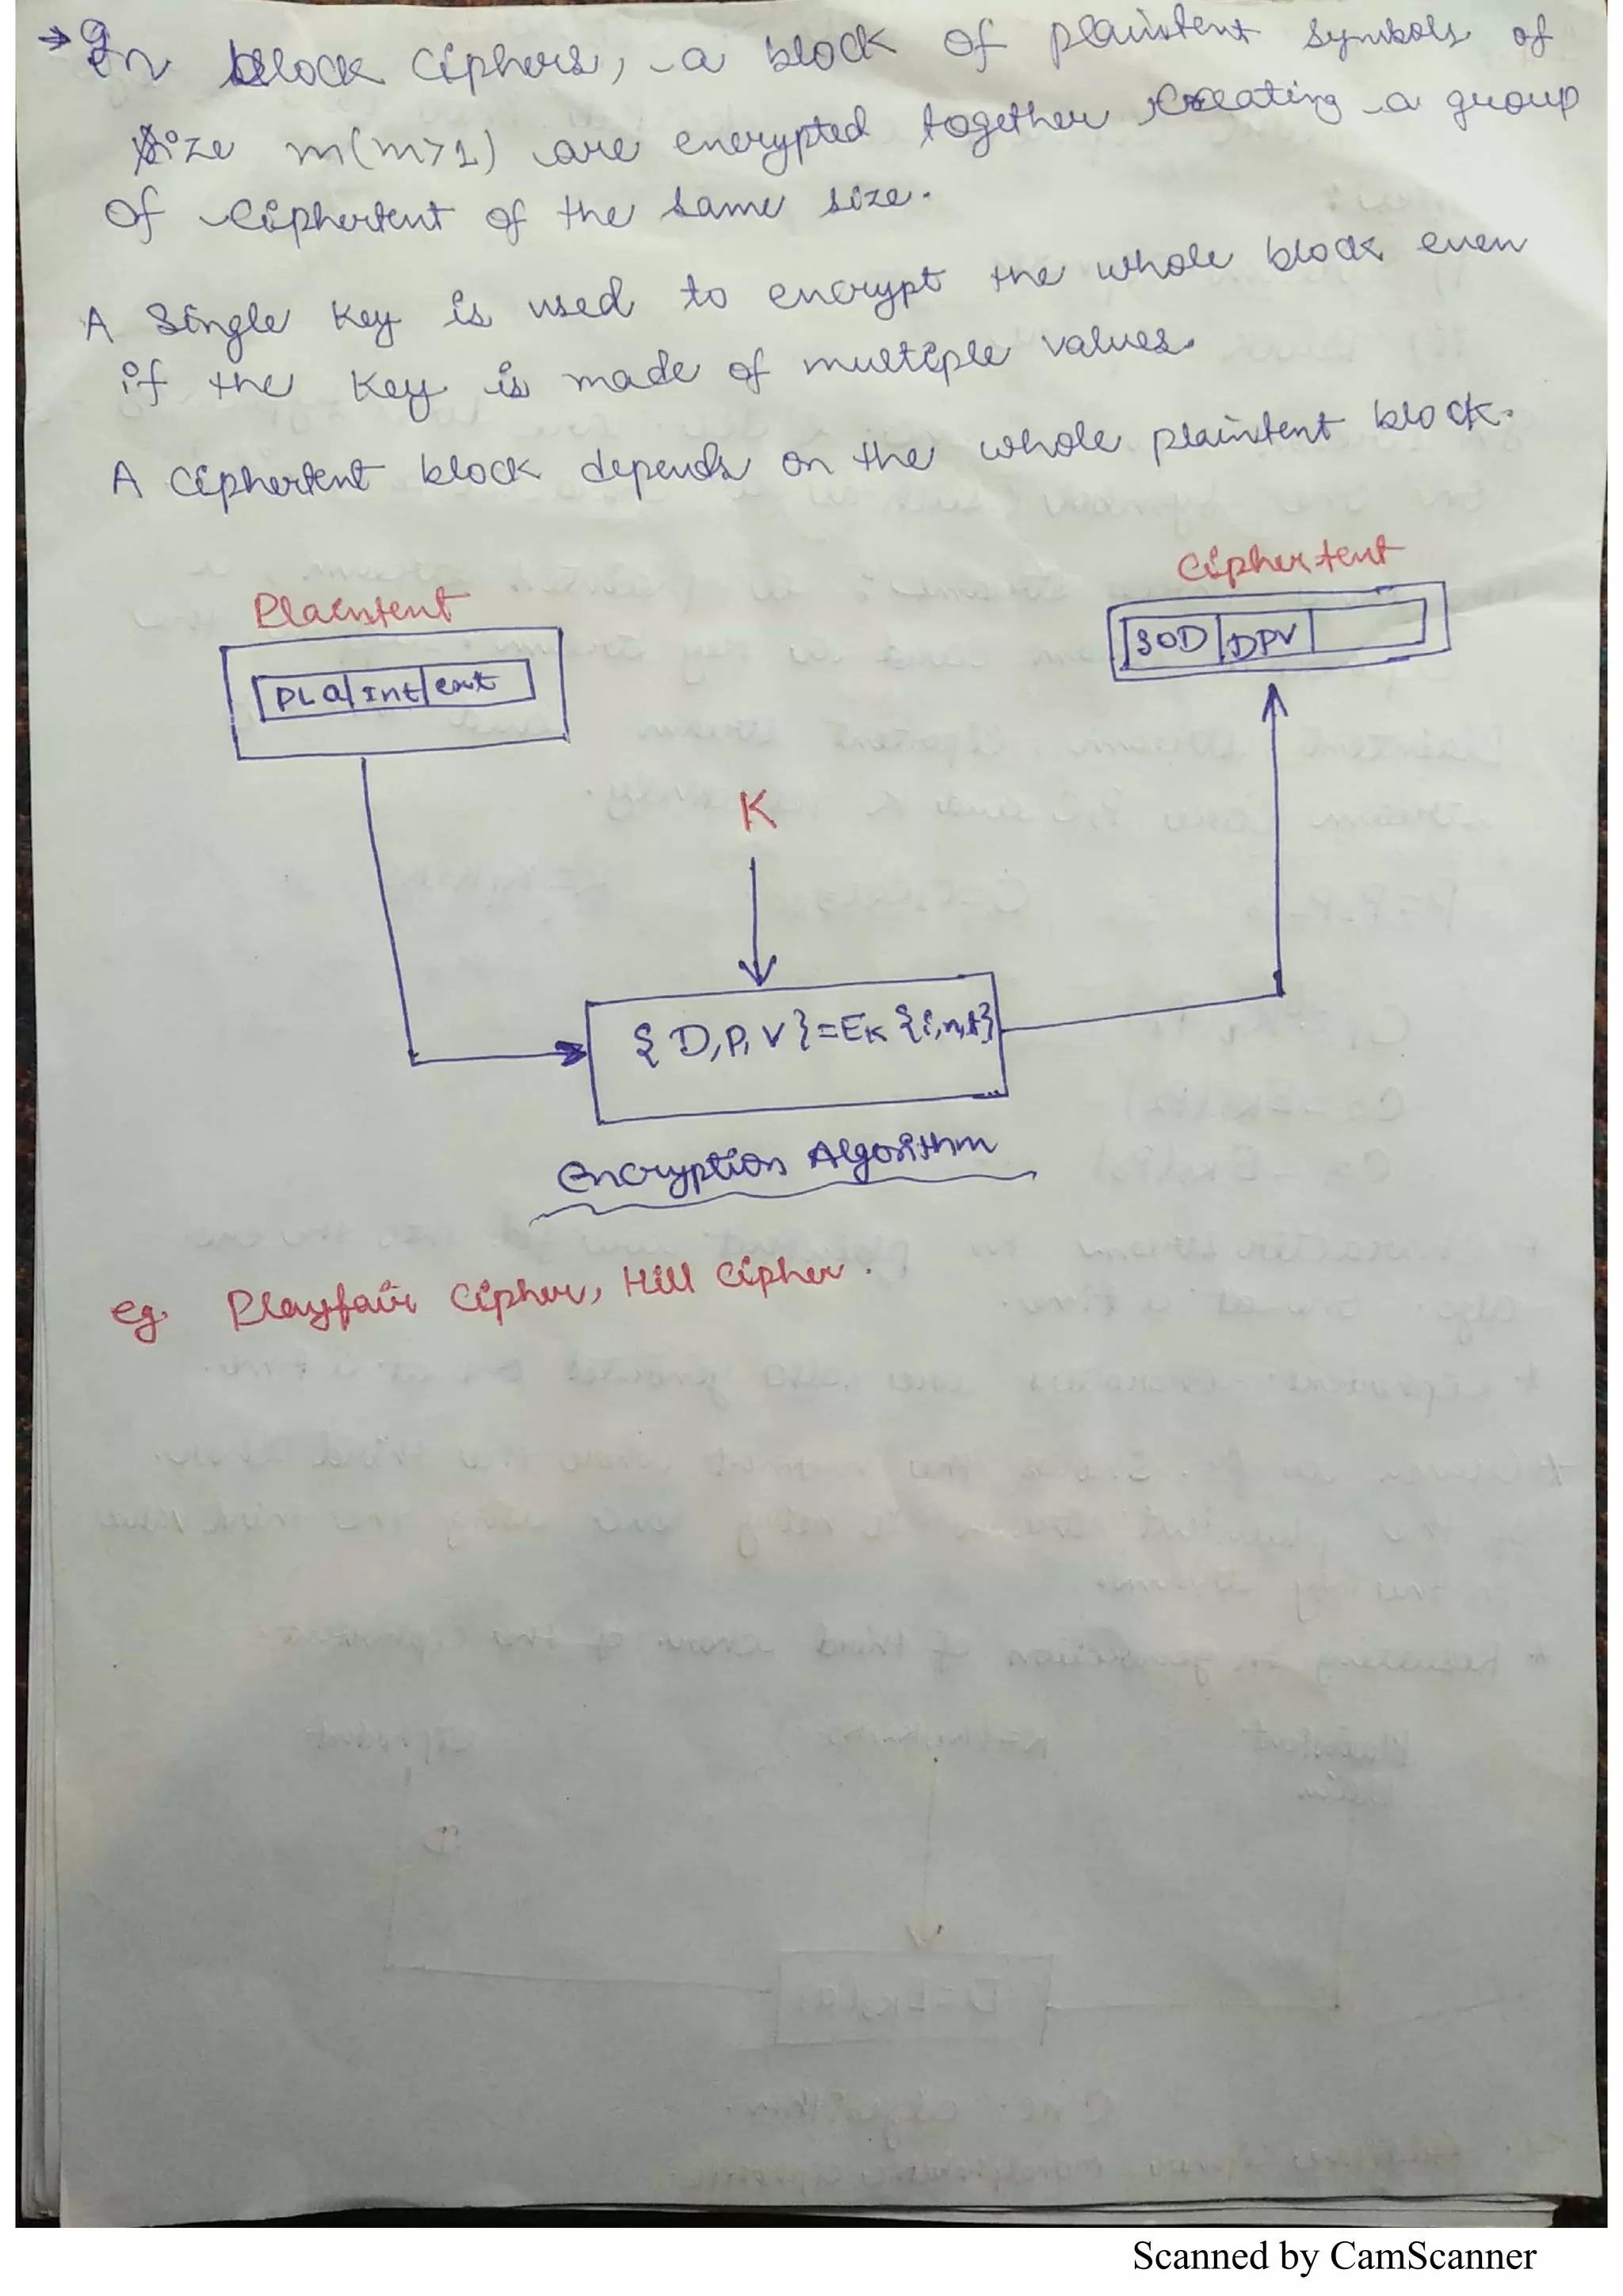 → In block ciphers, a block of plaintext symbols of
size m(m>1) are encrypted together creating a group
of ciphertext of the same size.
A single key is used to encrypt the whole block even
if the key is made of multiple values.
A ciphertext block depends on the whole plaintext block.
Ciphertext
Plaintext
SOD DPV
PLa Int ext
K
{D,P,V}=EK{i,n,t}
encryption Algorithm
eg. Playfair Cipher, Hill Cipher.
Scanned by CamScanner